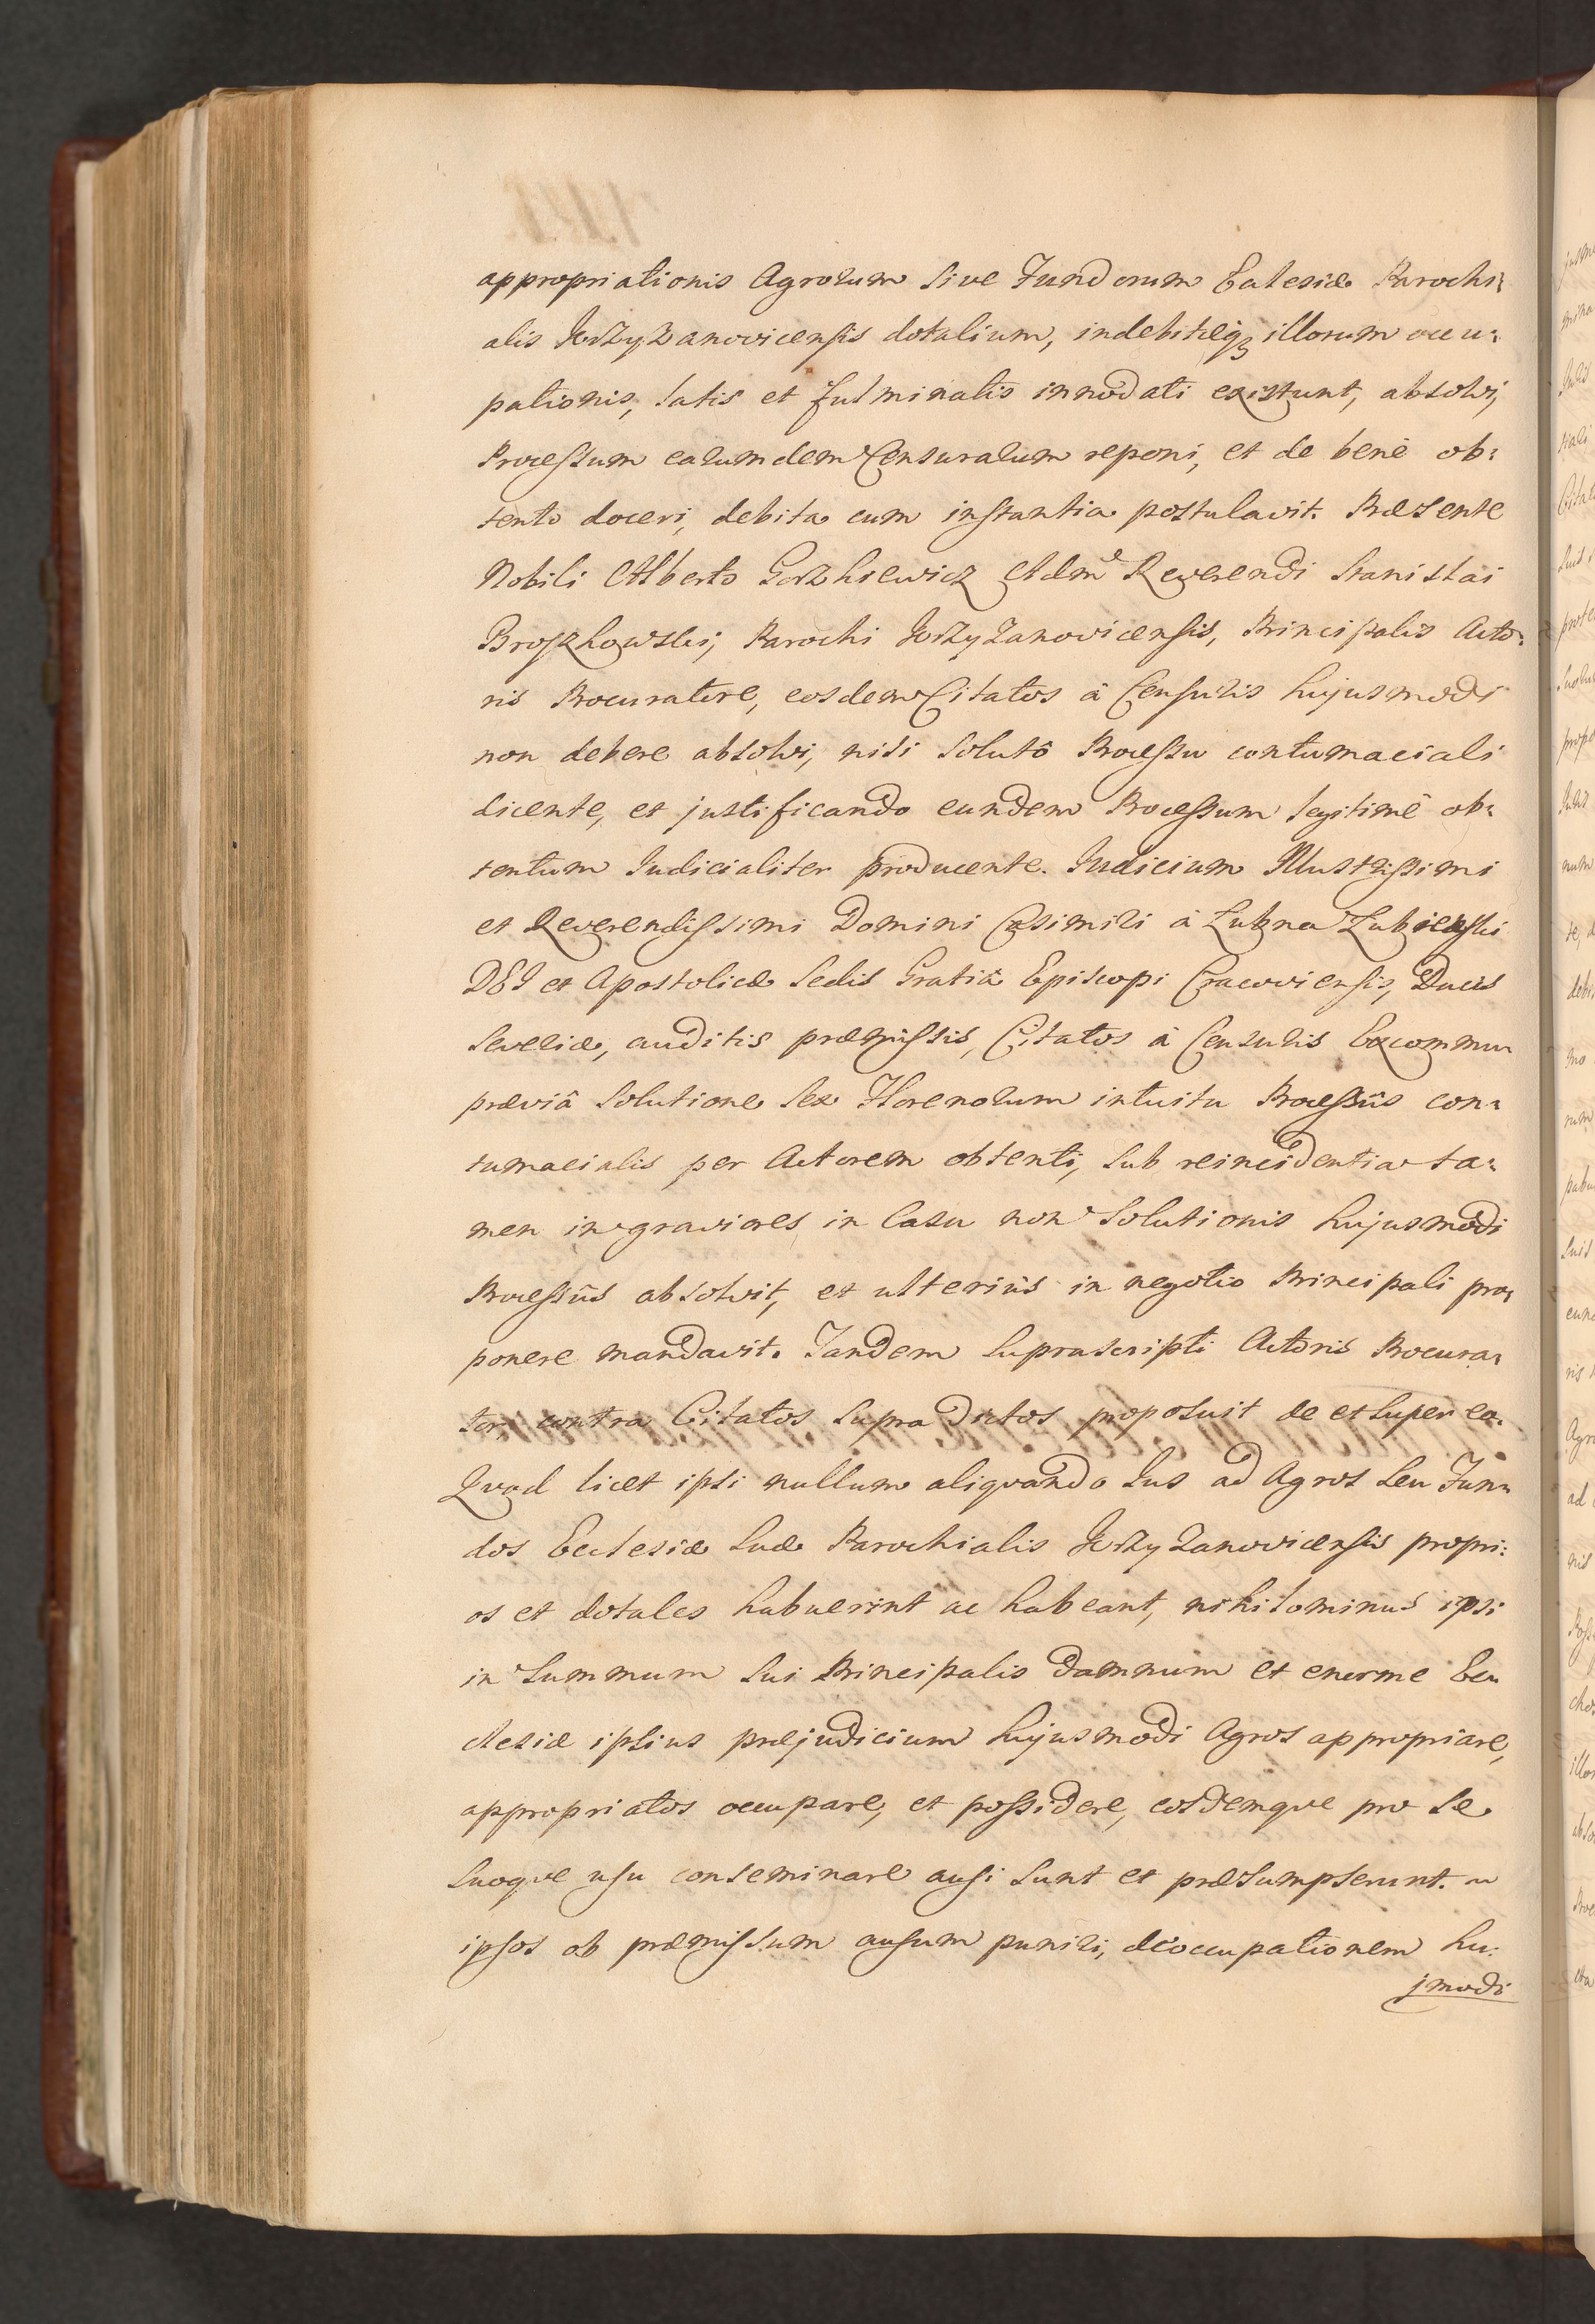 appropriationis Agrorum sive Fundorum Eclesiæ Parochi:
alis JerzyZanovicensis dotalium, indebitæq₃ illorum occu:
pationis, latis et fulminatis innodati existunt, absolvi,
Processum earumdem Censurarum reponi, et de benè ob:
tento doceri, debita cum instantia postulavit. Præsente
Nobili Alberto Gorzkiewicz Admᵈ Reverendi Stanislai
Broszkowski, Parochi JerzyZanovicensis, Principalis Acto:
ris Procuratore, eosdem Citatos â Censuris hujusmodi
non debere absolvi, nisi solutô Processu contumaciali
dicente, et justificando eundem Processum legitimê ob:
tentum Judicialiter producente. Judicium Illustrissimi
et Reverendissimi Domini Casimiri â Lubna Lubienski
DEI et Apostolicæ Sedis Gratiâ Episcopi Cracoviensis, Ducis
Severiæ, auditis præmissis, Citatos â Censuris Excommun
præviâ solutione sex Florenorum intuitu Processûs con:
tumacialis per Actorem obtenti, sub reincidentia ta:
men in graviores in Casu non solutionis hujusmodi
Processûs absolvit, et ulteriùs in negotio Principali pro:
ponere mandavit. Tandem suprascripti Actoris Procura:
tor, contra Citatos supra dictos proposuit de et super eo.
Quod licet ipsi nullum aliquando Jus ad Agros seu Fun:
dos Ecclesiæ suæ Parochialis JerzyZanovicensis propri:
os et dotales habuerint ac habeant, nihilominus ipsi
in summum sui Principalis damnum et enorme Ec:
clesiæ ipsius præjudicium hujusmodi Agros appropriare,
appropriatos occupare, et possidere, eosdemque pro se
suoque usu conseminare ausi sunt et præsumpserunt.
ipsos ob præmissum ausum puniri, deoccupationem hu:
jmodi